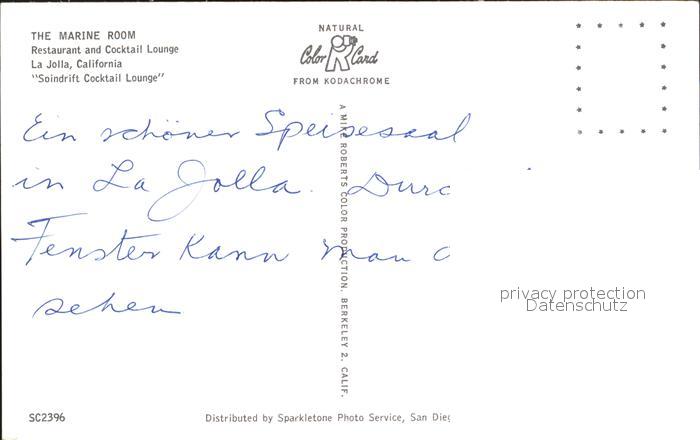 THE MARINE ROOM
Restaurant and Cocktail Lounge
La Jolla, California
"Soindrift Cocktail Lounge"
NATURAL
Color Card
FROM KODACHROME
Ein schöner Speisesaal
in La Jolla. Durc
Fenster Kann man
sehen
A MIKE ROBERTS COLOR PRODUCTION, BERKELEY 2, CALIF.
privacy protection
Datenschutz
SC2396
Distributed by Sparkletone Photo Service, San Dieg